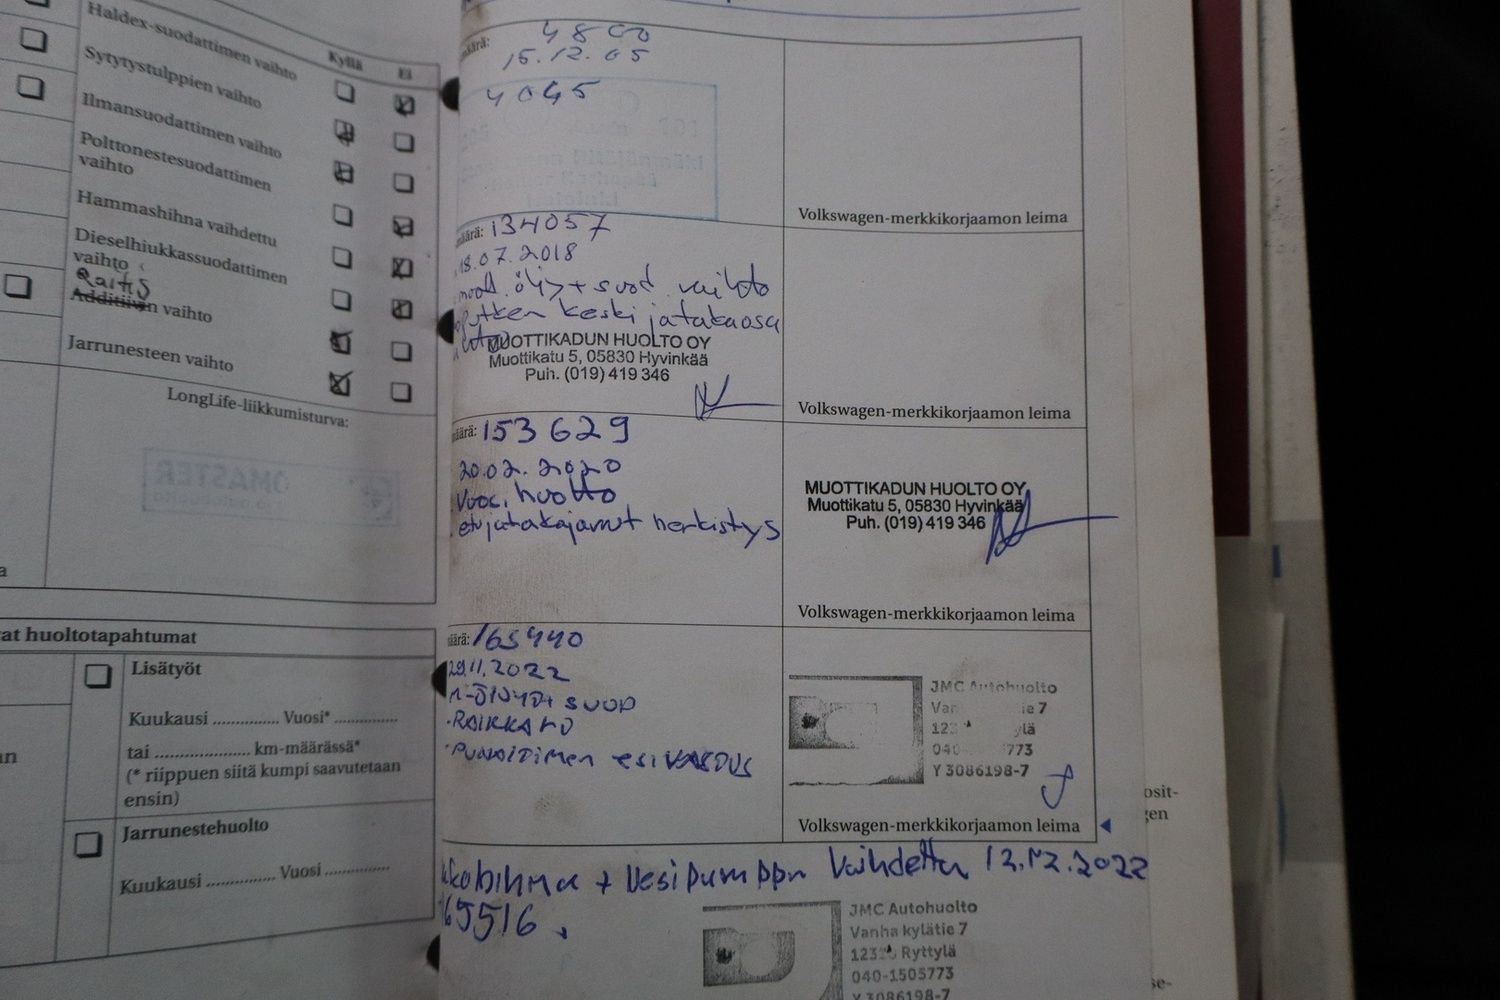 Kyllä
Ei
Haldex-suodattimen vaihto
Sytytystulppien vaihto
Ilmansuodattimen vaihto
Polttonestesuodattimen
vaihto
Hammashihna vaihdettu
Dieselhiukkassuodattimen
vaihto
Additiivin vaihto
Jarrunesteen vaihto
LongLife-liikkumisturva:
at huoltotapahtumat
Lisätyöt
Kuukausi ............... Vuosi* ...............
tai ..................... km-määrässä*
(* riippuen siitä kumpi saavutetaan
ensin)
Jarrunestehuolto
Kuukausi ............... Vuosi ...............
määrä: 4800
15.12.05
4045
Volkswagen-merkkikorjaamon leima
äärä: 134057
18.07.2018
öljy + suod. vaihto
keski ja takaosa
MUOTTIKADUN HUOLTO OY
Muottikatu 5, 05830 Hyvinkää
Puh. (019) 419 346
Volkswagen-merkkikorjaamon leima
määrä: 153629
20.02.2020
Vuosi huolto
etujatakajarrut herkistys
MUOTTIKADUN HUOLTO OY
Muottikatu 5, 05830 Hyvinkää
Puh. (019) 419 346
Volkswagen-merkkikorjaamon leima
määrä: 165440
29.11.2022
M-ÖLJYT+ SUOD
RAIKKAHD
esiVARDUS
JMC Autohuolto
ie 7
773
Y 3086198-7
Volkswagen-merkkikorjaamon leima
+ Vesipumppu Vaihdettu 12.12.2022
65516.
JMC Autohuolto
Vanha kylätie 7
Ryttylä
040-1505773
Y 3086198-7